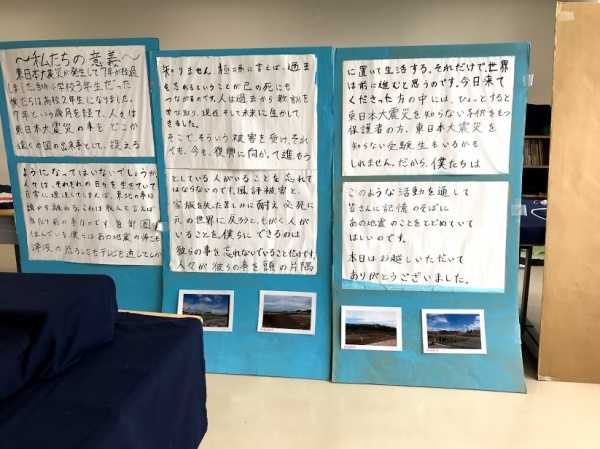 ～私たちの意義～
東日本大震災が発生して7年が経過
しました。当時小学校3年生だった
僕たちは高校2年生になりました。
7年という歳月を経て、人々は
東日本大震災の事をどこか
遠くの国の出来事として、捉える
ようになってはいないでしょうか。
人々は、それぞれの日々を生きていて
日常に埋没してしまえば、東北の事は
頭から離れる。これは教人と言えば
当たり前の事なのです。首都圏に
住んでいる僕らはあの地震の怖さも
津波の恐ろしさもテレビを通してしか
知りません。極論に言えば、過去
を忘れるということが己の死にも
つながるのです。人は過去から教訓を
受け取り、現在そして未来に生かして
きました。
そこで、そういう被害を受け、それ
でも、今も、復興に向かって進もう
としている人がいることを忘れて
はならないのです。風評被害と、
家族を失った苦しみに耐え必死に
元の世界に戻ろうと、もがく人が
いることを。僕らにできるのは
彼らの事を忘れないでいることだけです。
人々が彼らの事を頭の片隅
に置いて生活する。それだけで、世界
は前に進むと思うのです。今日来て
くださった方の中には、ひょっとすると
東日本大震災を知らない子供をもつ
保護者の方、東日本大震災を
知らない受験生もいるかも
しれません。だから、僕たちは
このような活動を通して
皆さんに記憶のそばに
あの地震のことをとどめていて
ほしいのです。
本日はお越しいただいて
ありがとうございました。